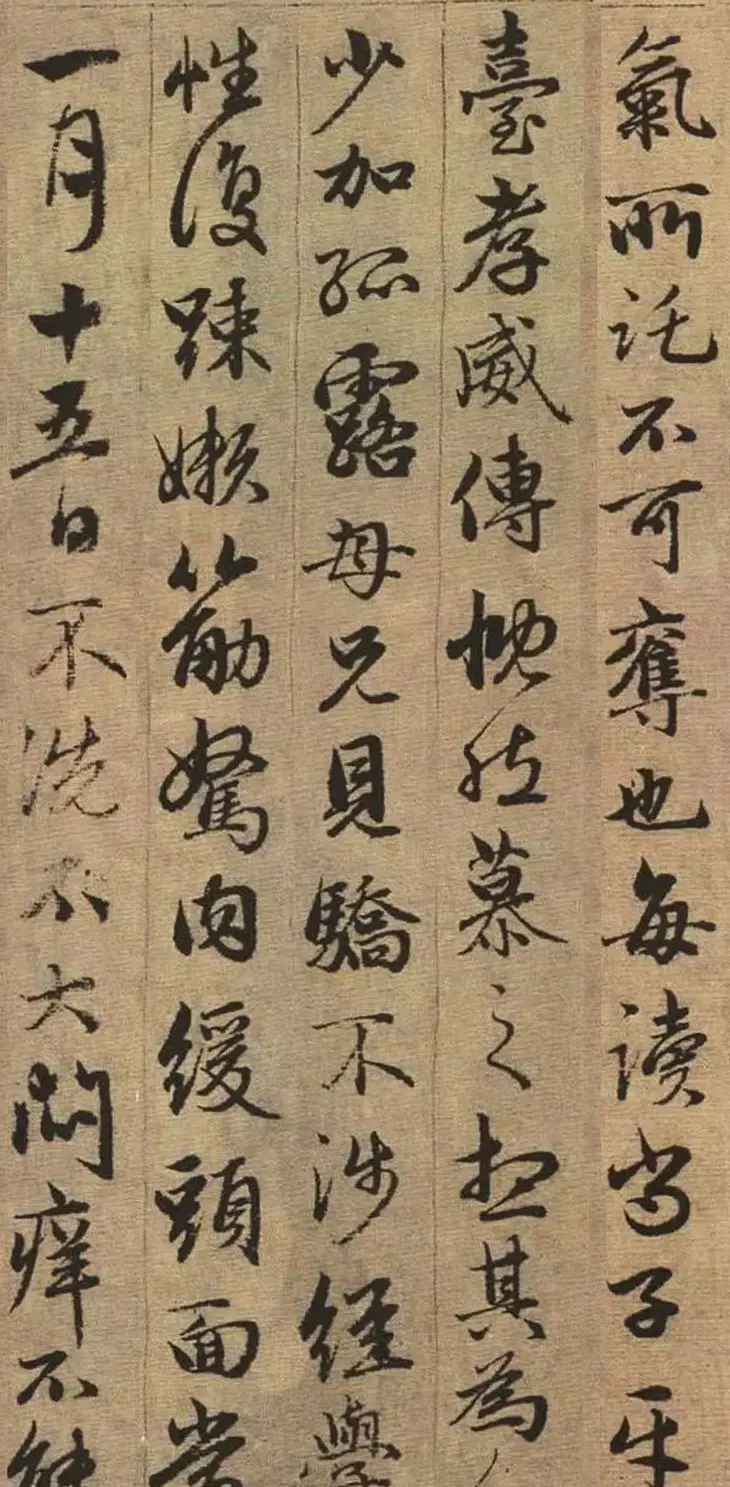 氣所託不可奪也每讀尚子平
臺孝威傳慨然慕之想其為人
少加孤露母兄見驕不涉經學
性復疎嬾筋駑肉緩頭面常
一月十五日不洗不大悶痒不能